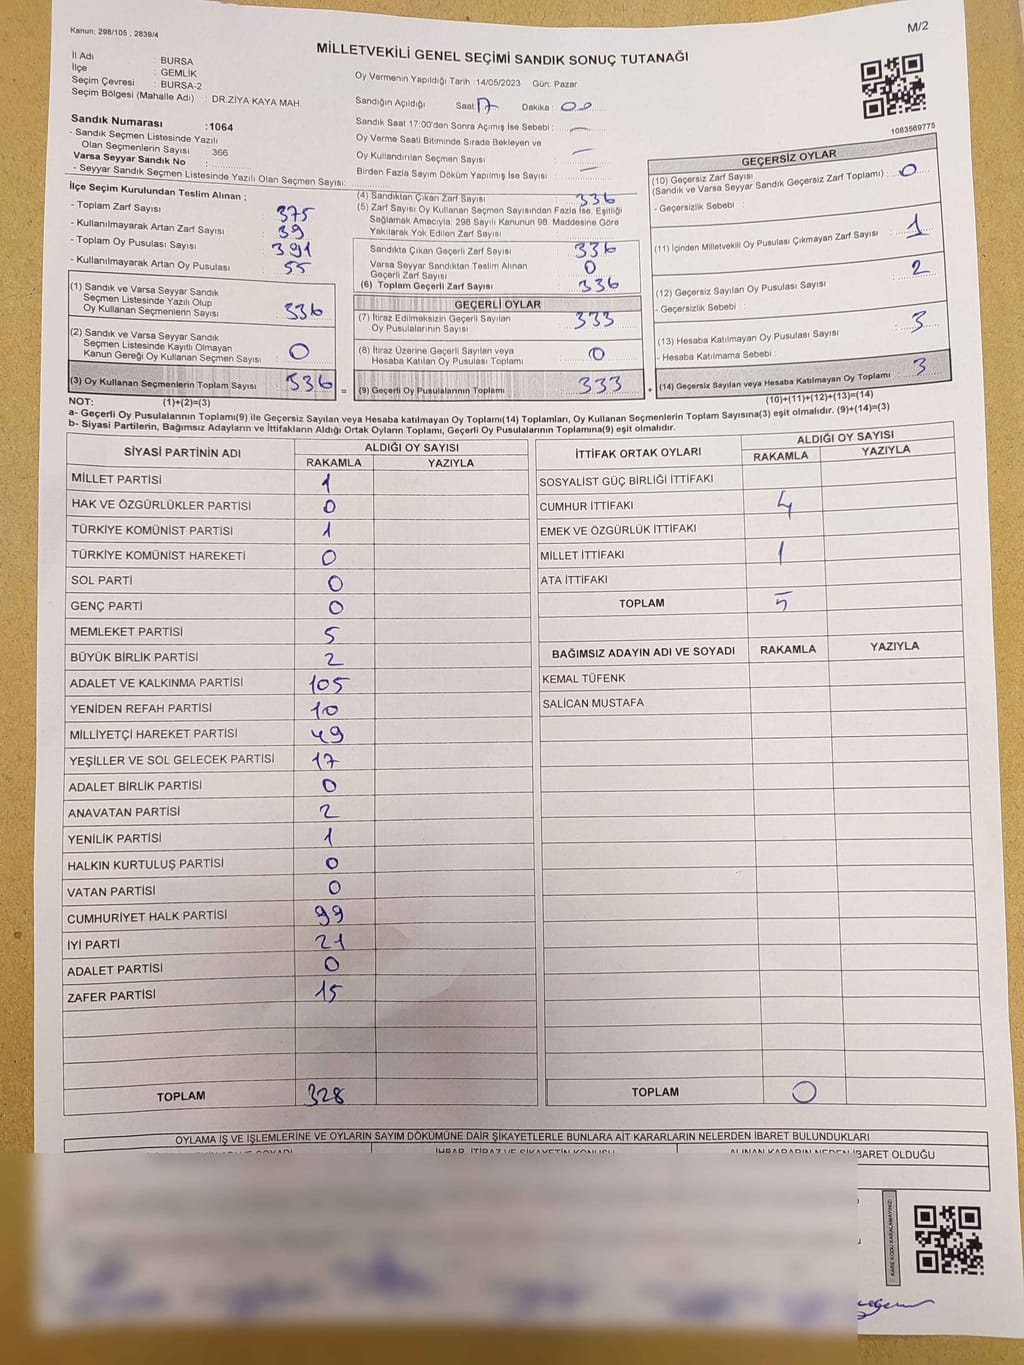 Kanun: 298/105 , 2839/4
M/2
MİLLETVEKİLİ GENEL SEÇİMİ SANDIK SONUÇ TUTANAĞI
İl Adı : BURSA
İlçe : GEMLİK
Seçim Çevresi : BURSA-2
Seçim Bölgesi (Mahalle Adı) : DR.ZİYA KAYA MAH.
Sandık Numarası :1064
- Sandık Seçmen Listesinde Yazılı
Olan Seçmenlerin Sayısı : 366
Varsa Seyyar Sandık No :
- Seyyar Sandık Seçmen Listesinde Yazılı Olan Seçmen Sayısı:
Oy Vermenin Yapıldığı Tarih :14/05/2023 Gün: Pazar
Sandığın Açıldığı Saat: 17 Dakika : 00
Sandık Saat 17:00'den Sonra Açılmış İse Sebebi : —
Oy Verme Saati Bitiminde Sırada Bekleyen ve
Oy Kullandırılan Seçmen Sayısı : —
Birden Fazla Sayım Döküm Yapılmış İse Sayısı : —
1083569775
İlçe Seçim Kurulundan Teslim Alınan ;
- Toplam Zarf Sayısı 375
- Kullanılmayarak Artan Zarf Sayısı : 39
- Toplam Oy Pusulası Sayısı : 391
- Kullanılmayarak Artan Oy Pusulası : 55
(1) Sandık ve Varsa Seyyar Sandık
Seçmen Listesinde Yazılı Olup
Oy Kullanan Seçmenlerin Sayısı : 336
(2) Sandık ve Varsa Seyyar Sandık
Seçmen Listesinde Kayıtlı Olmayan
Kanun Gereği Oy Kullanan Seçmen Sayısı : 0
(3) Oy Kullanan Seçmenlerin Toplam Sayısı : 336 =
(1)+(2)=(3)
(4) Sandıktan Çıkan Zarf Sayısı : 336
(5) Zarf Sayısı Oy Kullanan Seçmen Sayısından Fazla İse, Eşitliği
Sağlamak Amacıyla; 298 Sayılı Kanunun 98. Maddesine Göre
Yakılarak Yok Edilen Zarf Sayısı :
Sandıkta Çıkan Geçerli Zarf Sayısı : 336
Varsa Seyyar Sandıktan Teslim Alınan
Geçerli Zarf Sayısı : 0
(6) Toplam Geçerli Zarf Sayısı : 336
GEÇERLİ OYLAR
(7) İtiraz Edilmeksizin Geçerli Sayılan
Oy Pusulalarının Sayısı : 333
(8) İtiraz Üzerine Geçerli Sayılan veya
Hesaba Katılan Oy Pusulası Toplamı : 0
(9) Geçerli Oy Pusulalarının Toplamı : 333 +
GEÇERSİZ OYLAR
(10) Geçersiz Zarf Sayısı
(Sandık ve Varsa Seyyar Sandık Geçersiz Zarf Toplamı) : 0
- Geçersizlik Sebebi :
(11) İçinden Milletvekili Oy Pusulası Çıkmayan Zarf Sayısı : 1
(12) Geçersiz Sayılan Oy Pusulası Sayısı : 2
- Geçersizlik Sebebi :
(13) Hesaba Katılmayan Oy Pusulası Sayısı : 3
- Hesaba Katılmama Sebebi :
(14) Geçersiz Sayılan veya Hesaba Katılmayan Oy Toplamı : 3
(10)+(11)+(12)+(13)=(14)
NOT:
a- Geçerli Oy Pusulalarının Toplamı(9) ile Geçersiz Sayılan veya Hesaba katılmayan Oy Toplamı(14) Toplamları, Oy Kullanan Seçmenlerin Toplam Sayısına(3) eşit olmalıdır. (9)+(14)=(3)
b- Siyasi Partilerin, Bağımsız Adayların ve İttifakların Aldığı Ortak Oyların Toplamı, Geçerli Oy Pusulalarının Toplamına(9) eşit olmalıdır.
SİYASİ PARTİNİN ADI ALDIĞI OY SAYISI
RAKAMLA YAZIYLA
MİLLET PARTİSİ 1
HAK VE ÖZGÜRLÜKLER PARTİSİ 0
TÜRKİYE KOMÜNİST PARTİSİ 1
TÜRKİYE KOMÜNİST HAREKETİ 0
SOL PARTİ 0
GENÇ PARTİ 0
MEMLEKET PARTİSİ 5
BÜYÜK BİRLİK PARTİSİ 2
ADALET VE KALKINMA PARTİSİ 105
YENİDEN REFAH PARTİSİ 10
MİLLİYETÇİ HAREKET PARTİSİ 49
YEŞİLLER VE SOL GELECEK PARTİSİ 17
ADALET BİRLİK PARTİSİ 0
ANAVATAN PARTİSİ 2
YENİLİK PARTİSİ 1
HALKIN KURTULUŞ PARTİSİ 0
VATAN PARTİSİ 0
CUMHURİYET HALK PARTİSİ 99
İYİ PARTİ 21
ADALET PARTİSİ 0
ZAFER PARTİSİ 15
TOPLAM 328
İTTİFAK ORTAK OYLARI ALDIĞI OY SAYISI
RAKAMLA YAZIYLA
SOSYALİST GÜÇ BİRLİĞİ İTTİFAKI
CUMHUR İTTİFAKI 4
EMEK VE ÖZGÜRLÜK İTTİFAKI
MİLLET İTTİFAKI 1
ATA İTTİFAKI
TOPLAM 5
BAĞIMSIZ ADAYIN ADI VE SOYADI RAKAMLA YAZIYLA
KEMAL TÜFENK
SALİCAN MUSTAFA
TOPLAM 0
OYLAMA İŞ VE İŞLEMLERİNE VE OYLARIN SAYIM DÖKÜMÜNE DAİR ŞİKAYETLERLE BUNLARA AİT KARARLARIN NELERDEN İBARET BULUNDUKLARI
İHBAR, İTİRAZ VE ŞİKAYETİN KONUSU ALINAN KARARIN NEDEN İBARET OLDUĞU
KARE KODU KARALAMAYINIZ!